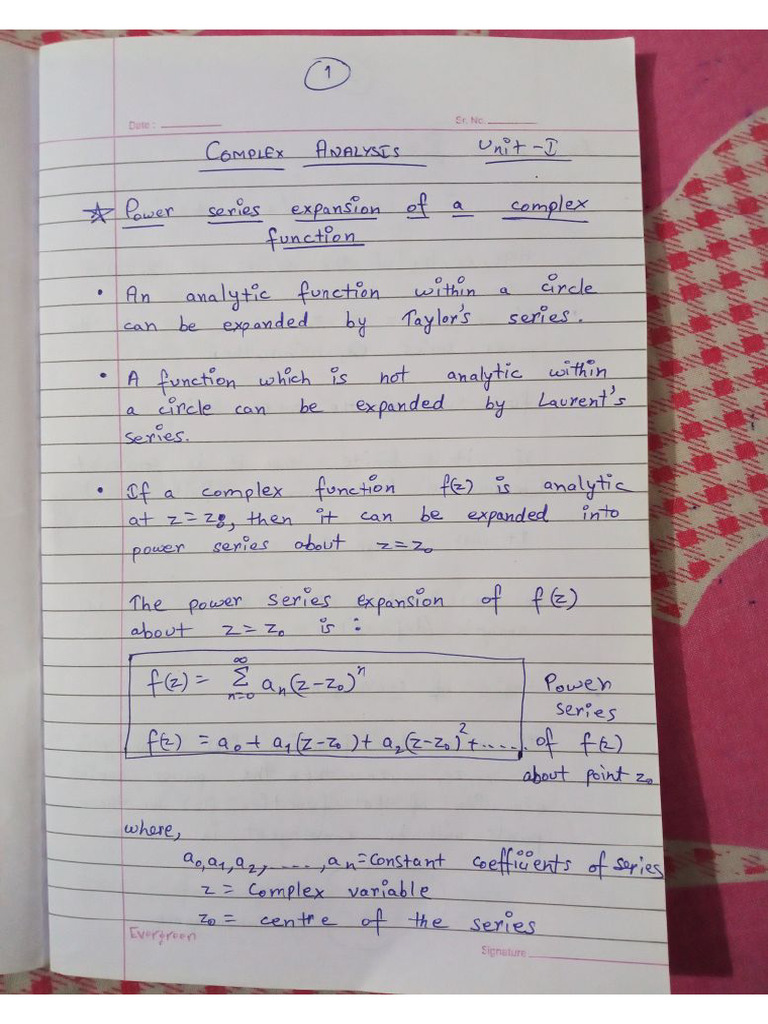 1
Date :
Sr. No.
COMPLEX ANALYSIS Unit -I
☆ Power series expansion of a complex
function
• An analytic function within a circle
can be expanded by Taylor's series.
• A function which is not analytic within
a circle can be expanded by Laurent's
series.
• If a complex function f(z) is analytic
at z = z₀, then it can be expanded into
power series about z = z₀
The power series expansion of f(z)
about z = z₀ is :
f(z) = ∞ Σ n=0 aₙ(z-z₀)ⁿ
f(z) = a₀ + a₁(z-z₀) + a₂(z-z₀)² + .....
Power
series
of f(z)
about point z₀
where,
a₀,a₁,a₂, ....., aₙ = constant coefficients of series
z = complex variable
z₀ = centre of the series
Evergreen
Signature